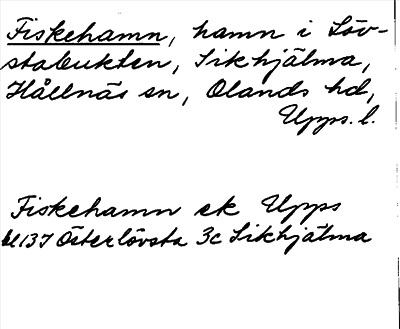 Fiskehamn, hamn i Löv-
stabukten, Sikhjälma,
Hållnäs sn, Olands hd,
Upps. l.
Fiskehamn ek Upps
bl 137 Österlövsta 3c Sikhjälma